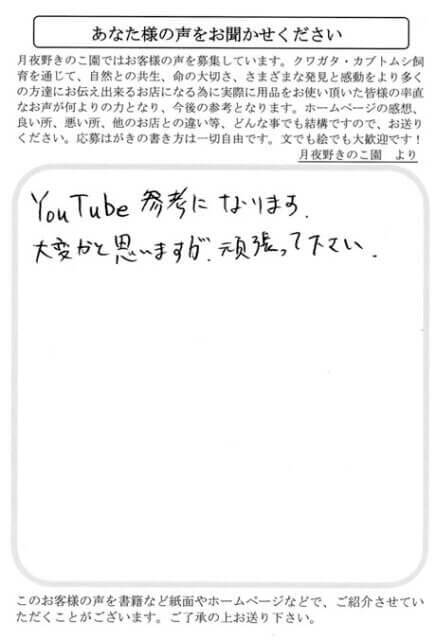 あなた様の声をお聞かせください
月夜野きのこ園ではお客様の声を募集しています。クワガタ・カブトムシ飼
育を通じて、自然との共生、命の大切さ、さまざまな発見と感動をより多く
の方達にお伝え出来るお店になる為に実際に用品をお使い頂いた皆様の率直
なお声が何よりの力となり、今後の参考となります。ホームページの感想、
良い所、悪い所、他のお店との違い等、どんな事でも結構ですので、お送り
ください。応募はがきの書き方は一切自由です。文でも絵でも大歓迎です！
月夜野きのこ園　より
YouTube 参考になります.
大変かと思いますが.頑張って下さい.
このお客様の声を書籍など紙面やホームページなどで、ご紹介させてい
ただくことがございます。ご了承の上お送り下さい。